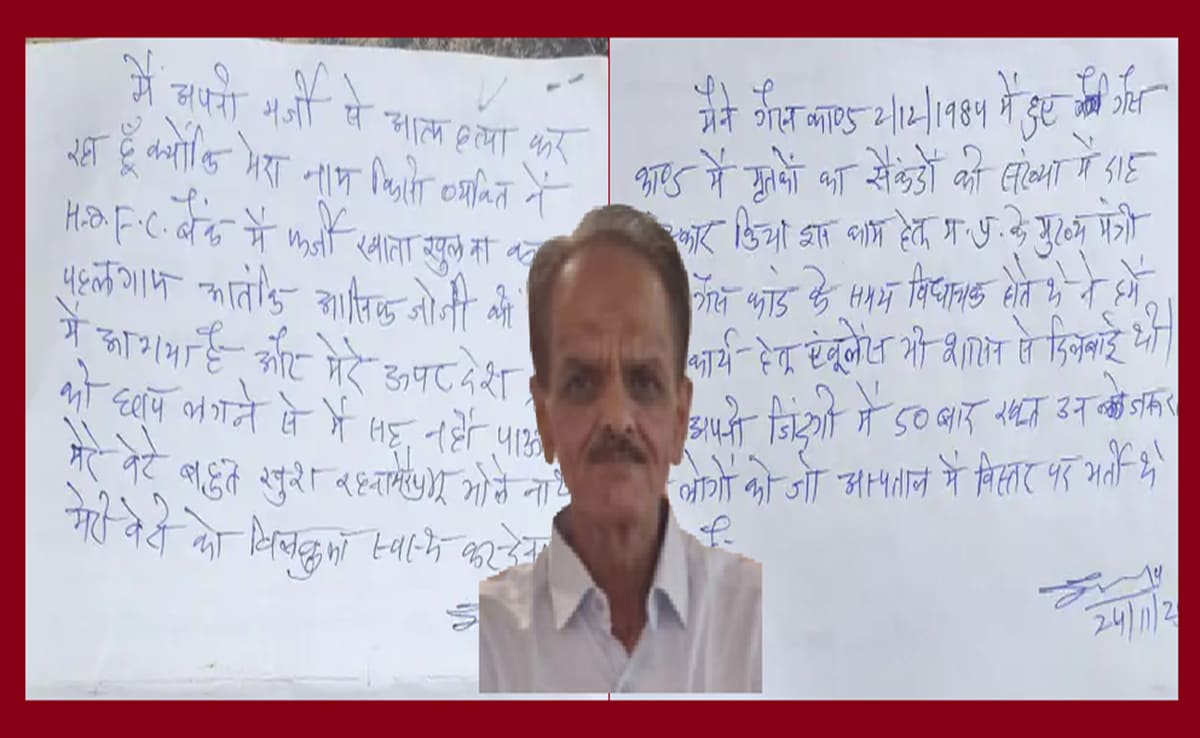 मैं अपनी मर्जी से आत्म हत्या कर
रहा हूँ क्योंकि मेरा नाम किसी व्यक्ति ने
H.D.F.C. बैंक में फर्जी खाता खुलवा
पहलगाम आतंकि आसिफ
में आ गया है और मेरे ऊपर देश
को छाप लगने से में सह नहीं
मेरे बेटे बहुत खुश रहना भोले
मेरी बेटी को बिलकुल स्वास्थ कर देना
मैने गैस काण्ड 2/12/1984 में हुए गैस
काण्ड में मृतकों का सैकंडों की संख्या में दाह
किया इस काम हेतु म.प्र. के मुख्य मंत्री
गैस कांड के समय विधायक होते थे ने हमें
कार्य हेतु एंबूलेंस भी शासन से दिलबाई थी।
अपनी जिंदगी में 50 बार रक्त उन
लोगों को जो अस्पताल में बिस्तर पर भर्ती थे
है-
24/11/2